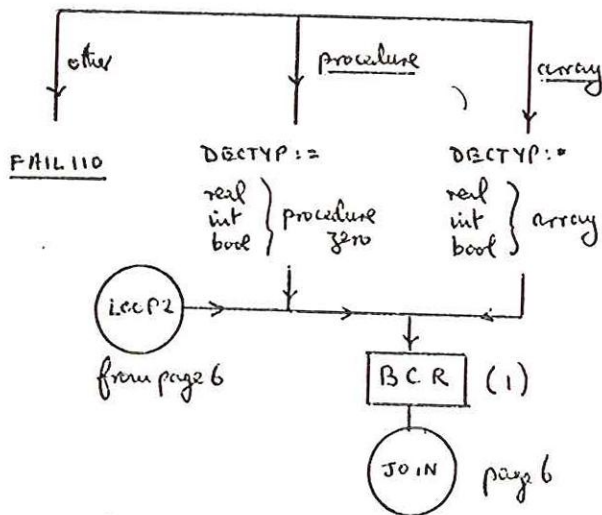 other
procedure
array
FAIL 110
DECTYP :=
real
int
bool
procedure
zero
DECTYP :=
real
int
bool
array
LOOP2
from page 6
B C R
(1)
JOIN
page 6